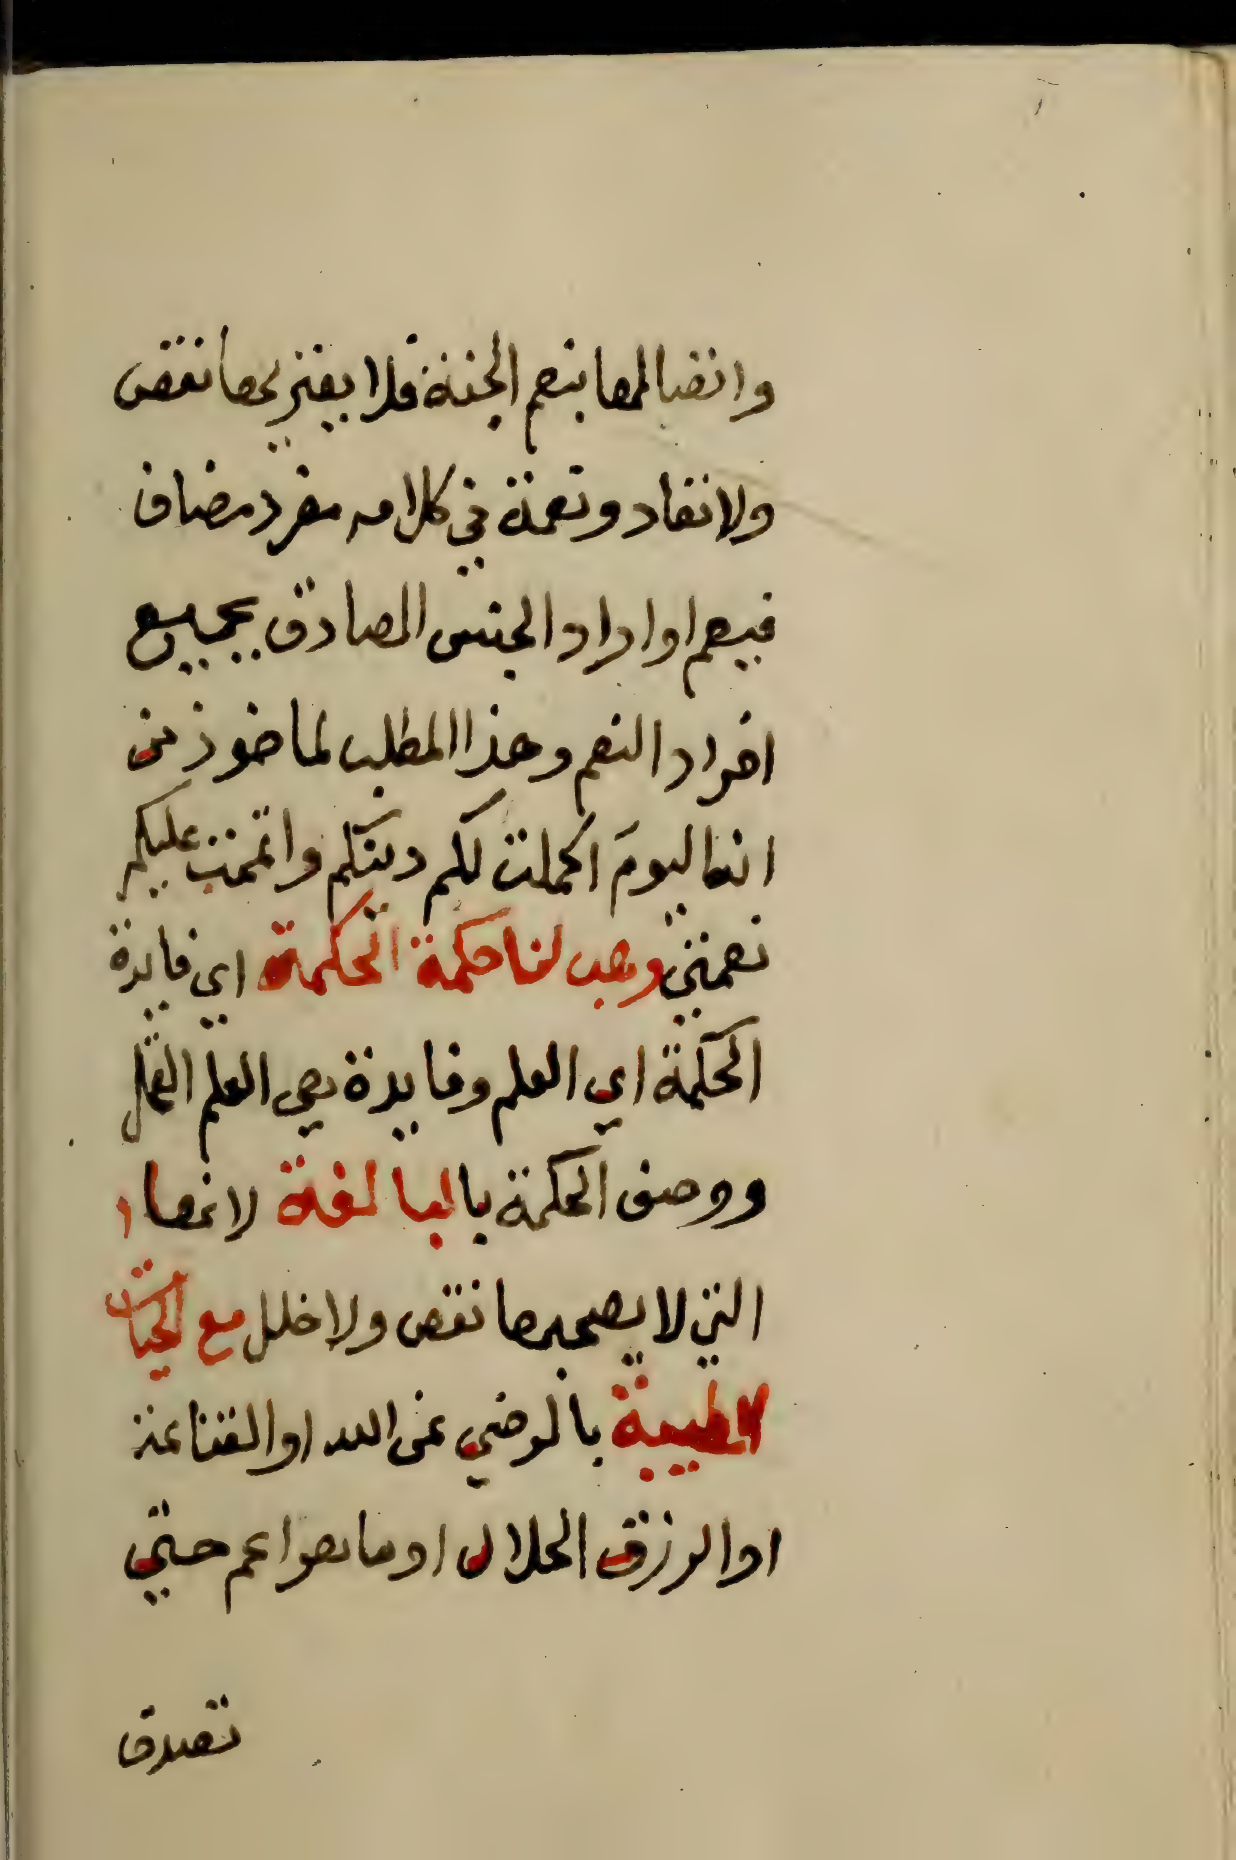 واتصالها بنعم الجنة فلا يعتريها نقص
ولا نفاد ونعمة في كلامه مفرد مضاف
فيعم او اراد الجنس الصادق بجميع
افراد النعم وهذا المطلب لماخوذ من
اليوم اكملت لكم دينكم واتممت عليكم
نعمتي وهب لنا حكمة الحكمة اي فايدة
الحكمة اي العلم وفايدة هي العلم العمل
ووصف الحكمة بالبالغة لانها
التي لا يصحبها نقص ولا خلل مع الحيات
الطيبة بالرضي عن الله او القناعة
او الرزق الحلال او ما هو اعم حتي
تصدق